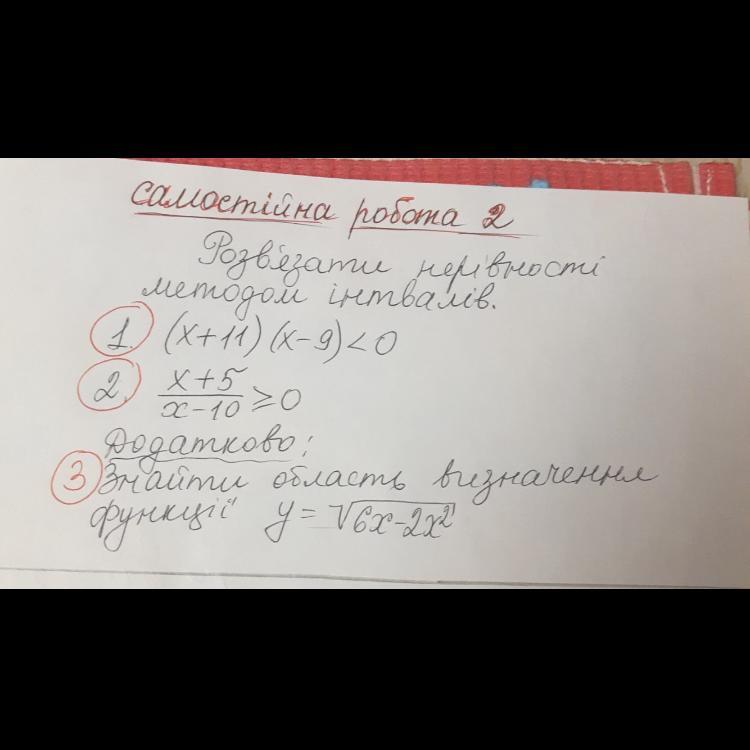 самостійна робота 2
Розв'язати нерівності
методом інтвалів.
1. (x+11)(x-9)<0
2. x+5
x-10 ≥0
Додатково:
3 Знайти область визначення
функції y = √6x-2x²